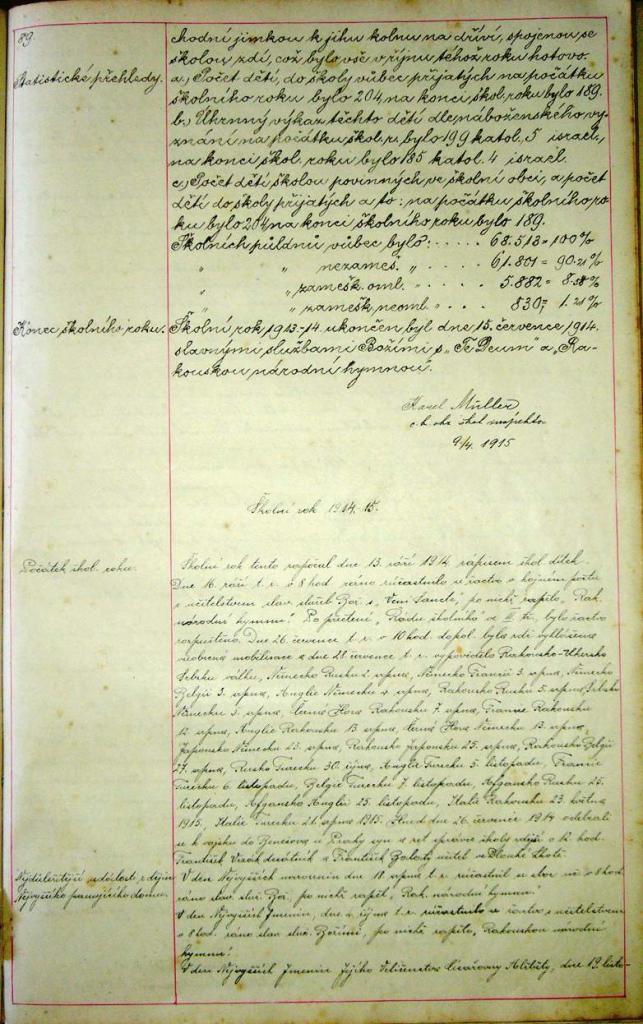 89
chodní jimkou k jihu kolnu na dříví, spojenou se
školou zdí, což bylo vše v říjnu téhož roku hotovo.
Statistické přehledy.
a, Počet dětí, do školy vůbec přijatých na počátku
školního roku bylo 204, na konci škol. roku bylo 189.
b, Úhrnný výkaz těchto dětí dle náboženského vy-
znání na počátku škol. r. bylo 199 katol. 5 israel.,
na konci škol. roku bylo 185 katol. 4 israel.
c, Počet dětí školou povinných ve školní obci, a počet
dětí do školy přijatých a to: na počátku školního ro-
ku bylo 204 na konci školního roku bylo 189.
Školních půldnů vůbec bylo: . . . . . 68.513 = 100%
" " nezameš. " . . . . 61.801 = 90.21%
" " zamešk. oml. " . . . . 5.882 = 8.58%
" " zamešk. neoml. " . . . 830 = 1.21%
Konec školního roku.
Školní rok 1913-14 ukončen byl dne 15. července 1914.
slavnými službami Božími s „Te Deum" a „Ra-
kouskou národní hymnou".
Karel Müller
c. k. okr. škol. inspektor
9/4. 1915
Školní rok 1914-15.
Počátek škol. roku.
Školní rok tento započal dne 13. září 1914 zápisem škol. dítek.
Dne 16. září t. r. o 8 hod. ráno súčastnilo se žactvo v hojném počtu
s učitelstvem slav. služeb Bož. s „Veni Sancte", po nichž zapělo „Rak.
národní hymnu". Po přečtení „Řádu školního" bylo žactvo
rozpuštěno. Dne 26. července t. r. o 10 hod. dopol. byla zdi vyhlášena
všeobecná mobilisace a dne 28. července t. r. vypovědělo Rakousko-Uhersko
Srbsku válku, Německo Rusku 2. srpna, Německo Francii 3. srpna, Německo
Belgii 3. srpna, Anglie Německu 4. srpna, Rakousko Rusku 5. srpna, Srbsko
Německu srpna, Černá Hora Rakousku 7. srpna, Francie Rakousku
12. srpna, Anglie Rakousku 13. srpna, Černá Hora Německu 12. srpna,
Japonsko Německu 23. srpna, Rakousko Japonsku 25. srpna, Rakousko Belgii
27. srpna, Rusko Turecku 30. října, Anglie Turecku 5. listopadu, Francie
Turecku 6. listopadu, Belgie Turecku 7. listopadu, Afganisko Rusku 25.
listopadu, Afgansko Anglii 25. listopadu, Italie Rakousku 23. května
1915, Italie Turecku 21. srpna 1915. Hned dne 26. července 1914 odebrali
se k vojsku do Benešova a Prahy syn a zeť správce školy zdejší o 12. hod.
František a František učitel ve Lhotě.
Nejdůležitější události z dějin
Nejvyššího panujícího domu.
V den Nejvyšších narozenin dne 18. srpna t. r. súčastnil se sbor na o 8 hod.
ráno slav. služ. Bož., po nichž zapěl „Rak. národní hymnu".
V den Nejvyšších Jmenin, dne 4. října t. r. súčastnilo se žactvo s učitelstvem
o 8 hod. ráno slav. služ. Božími, po nichž zapělo „Rakouskou národní
hymnu".
V den Nejvyšších Jmenin Jejího Veličenstva Císařovny Alžběty, dne 19. listo-